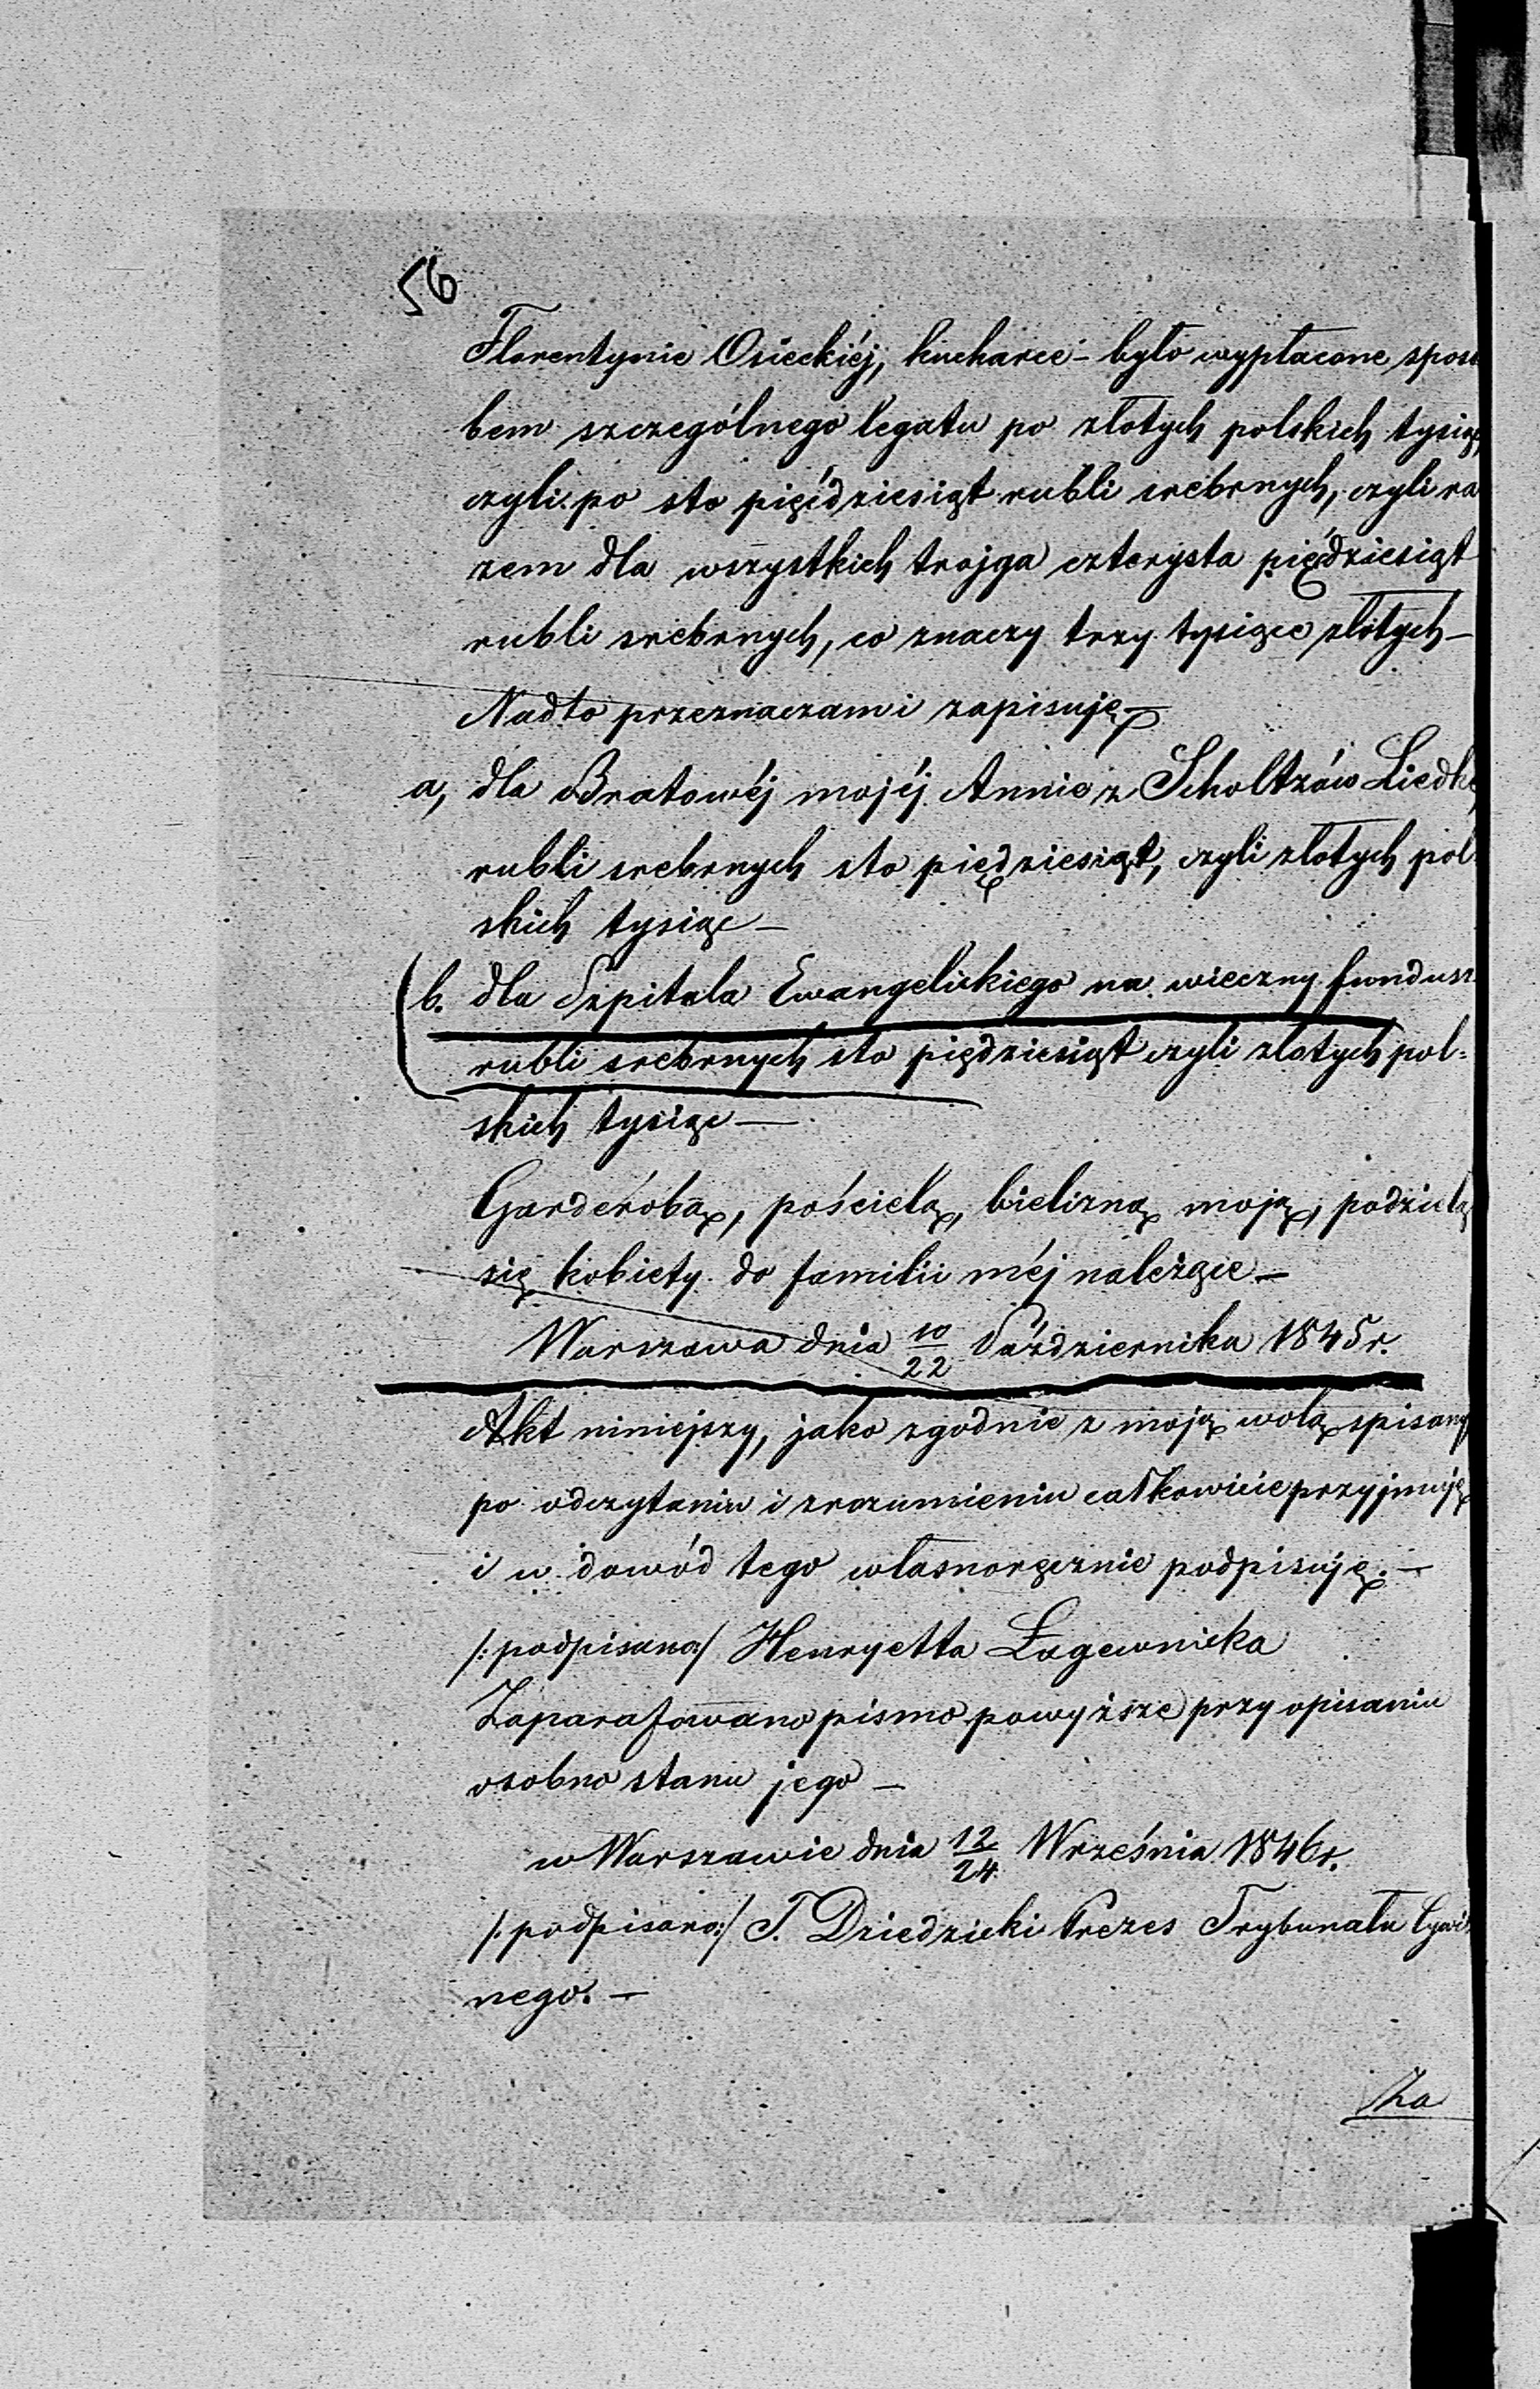 56
Florentynie Osieckiéj, kucharce – było wypłacone sposo
bem szczególnego legatu po złotych polskich tysiąc
czyli po sto pięćdziesiąt rubli srebrnych, czyli ra
zem dla wszystkich trojga czterysta pięćdziesiąt
rubli srebrnych, co znaczy trzy tysiące złotych –
Nadto przeznaczam i zapisuję –
a, dla Bratowéj mojéj Annie z Scholtzów Liedke
rubli srebrnych sto piędziesiąt, czyli złotych pol
skich tysiąc –
b. dla Szpitala Ewangelickiego na wieczny fundusz
rubli srebrnych sto piędziesiąt czyli złotych pol=
skich tysiąc –
Garderóbą, pościelą, bielizną moją, podzielą
się kobiety do familii méj należące –
Warszawa dnia 10/22 Października 1845 r.
Akt niniejszy, jako zgodnie z moją wolą spisany
po odczytaniu i zrozumieniu całkowicie przyjmuję
i w dowód tego własnoręcznie podpisuję. –
/: podpisana:/ Henryetta Łagewnicka
Zaparafowano pismo powyższe przy opisaniu
osobno stanu jego –
w Warszawie dnia 12/24 Września 1846 r.
/: podpisano:/ J. Dziedzicki Prezes Trybunału Cywil
nego. –
Za